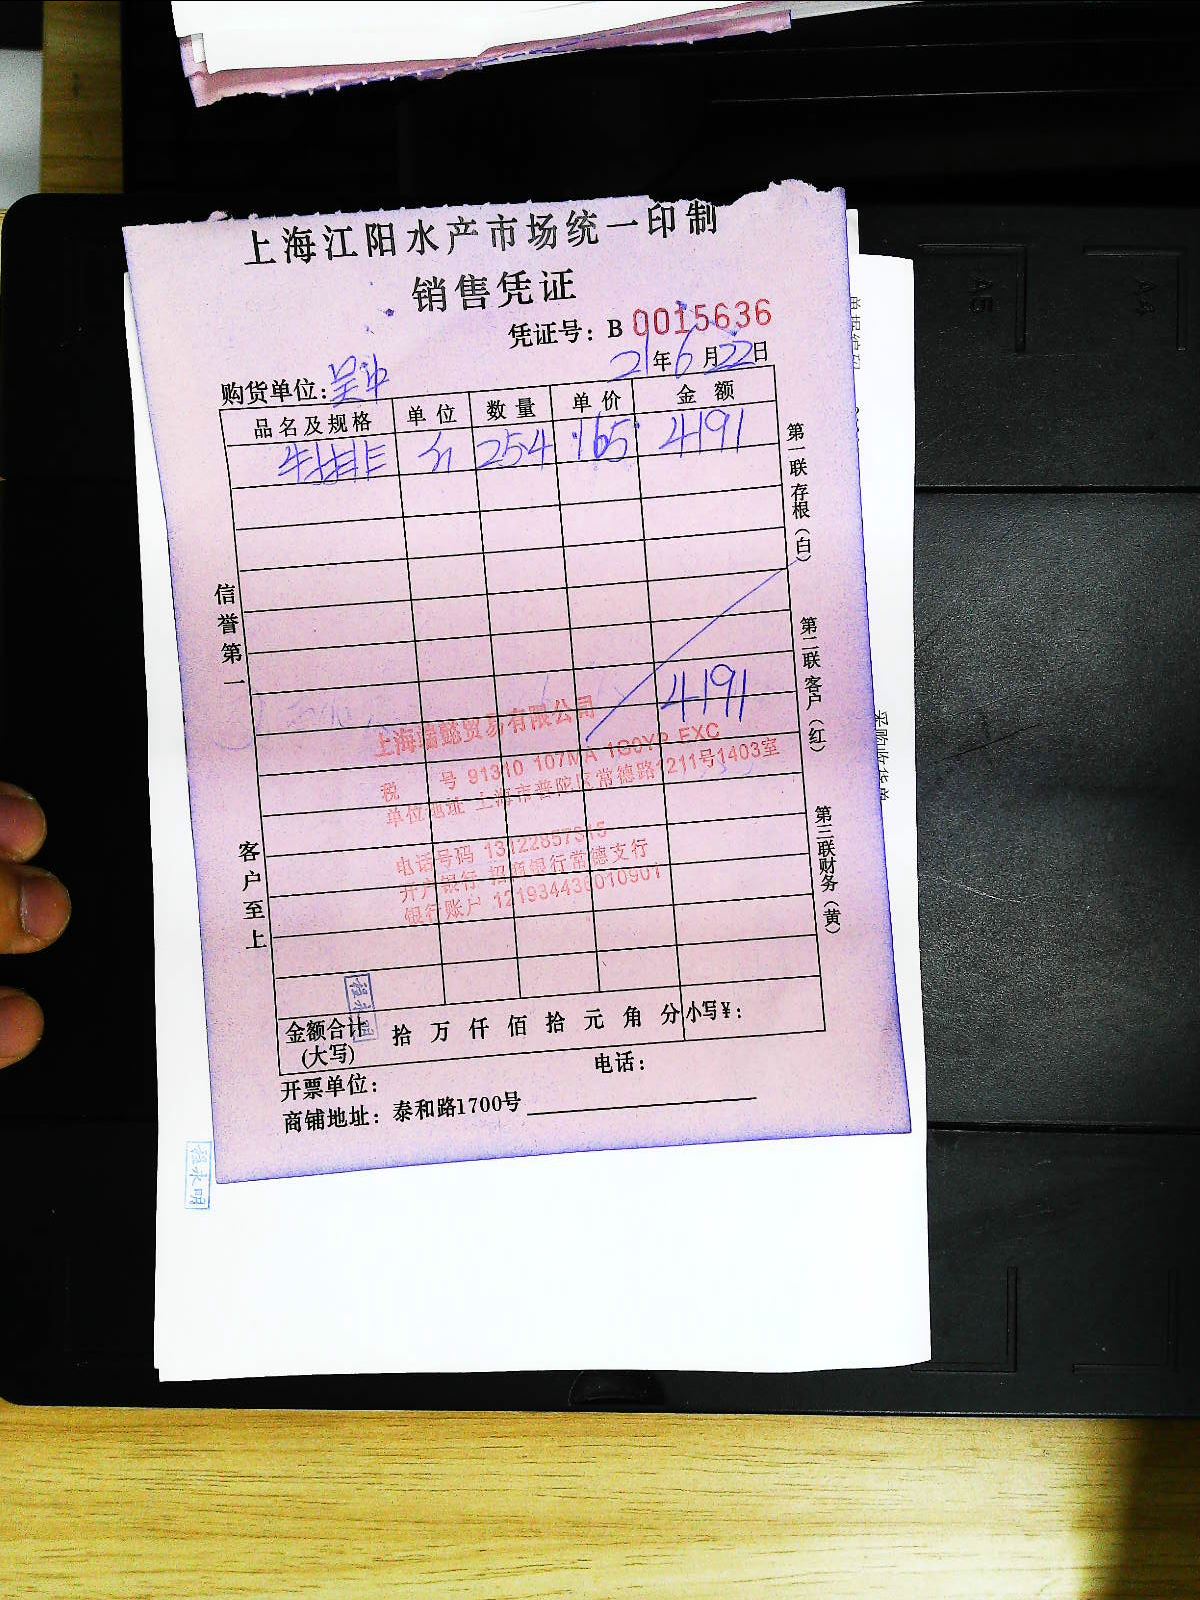 上海江阳水产市场统一印制
销售凭证
凭证号：B 0015636
21年6月22日
购货单位：吴中
品名及规格 单位 数量 单价 金额
牛排 斤 254 165 4191
4191
信誉第一
客户至上
第一联存根（白）
第二联客户（红）
第三联财务（黄）
上海瑞懿贸易有限公司
税 号 91310 107MA 1G0YP EXC
单位地址 上海市普陀区常德路1211号1403室
电话号码 13122857315
开户银行 招商银行常德支行
银行账户 121934436010901
程永明
金额合计 拾 万 仟 佰 拾 元 角 分 小写￥：
(大写)
开票单位： 电话：
商铺地址：泰和路1700号
程永明
A5
A4